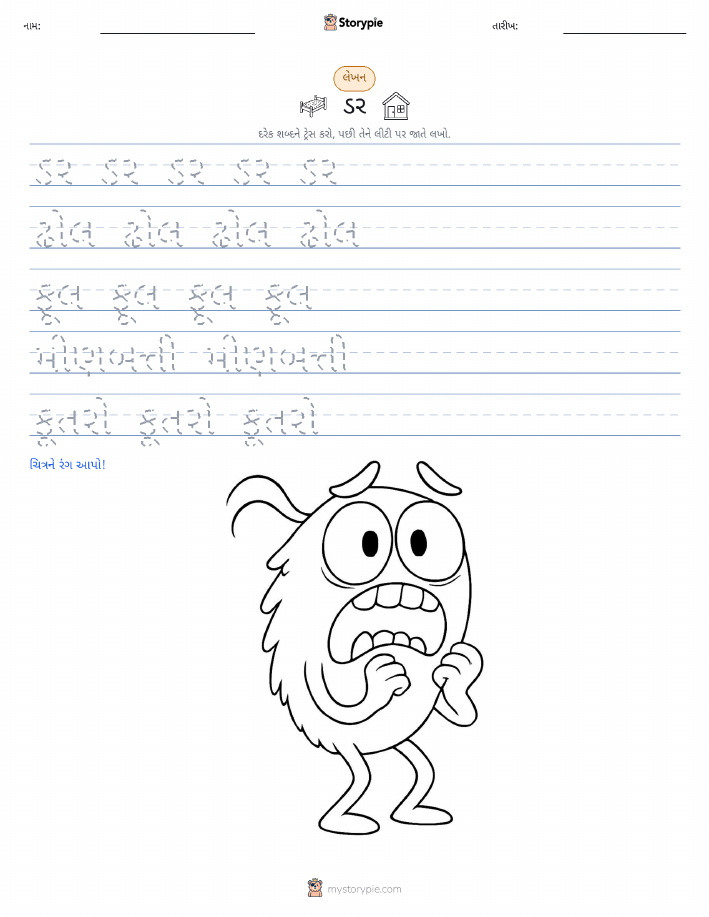 નામ: Storypie તારીખ:
લેખન
ડર
દરેક શબ્દને ટ્રેસ કરો, પછી તેને લીટી પર જાતે લખો.
ડર ડર ડર ડર ડર
ઢોલ ઢોલ ઢોલ ઢોલ
ફૂલ ફૂલ ફૂલ ફૂલ
મીણબત્તી મીણબત્તી
કૂતરો કૂતરો કૂતરો
ચિત્રને રંગ આપો!
mystorypie.com